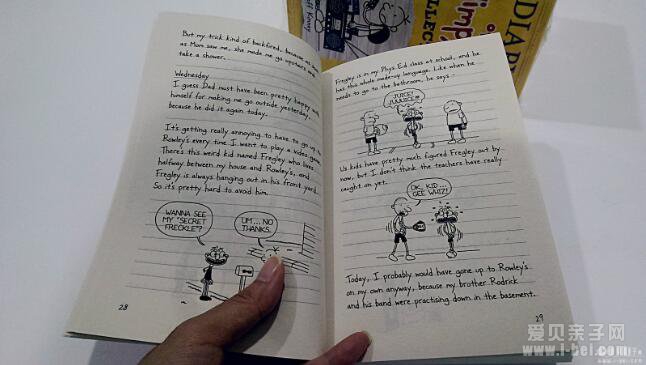 But my trick kind of backfired, because as
as Mom saw me, she made me go upstairs and
take a shower.
Wednesday
I guess Dad must have been pretty happy with
himself for making me go outside yesterday,
because he did it again today.
It's getting really annoying to have to go up
Rowley's every time I want to play a video game.
There's this weird kid named Fregley who lives
halfway between my house and Rowley's, and
Fregley is always hanging out in his front yard.
So it's pretty hard to avoid him.
WANNA SEE
MY "SECRET
FRECKLE"?
UM... NO
THANKS.
28
Fregley is in my Phys. Ed class at school, and he
has this whole made-up language. Like when he
needs to go to the bathroom, he says -
JUICE!
JUUUICE!!!
Us kids have pretty much figured Fregley out by
now, but I don't think the teachers have really
caught on yet.
OK, KID...
GEE WHIZ!
Today, I probably would have gone up to Rowley's
on my own anyway, because my brother Rodrick
and his band were practising down in the basement.
29
DIARY
爱贝亲子网
www.i-bei.com